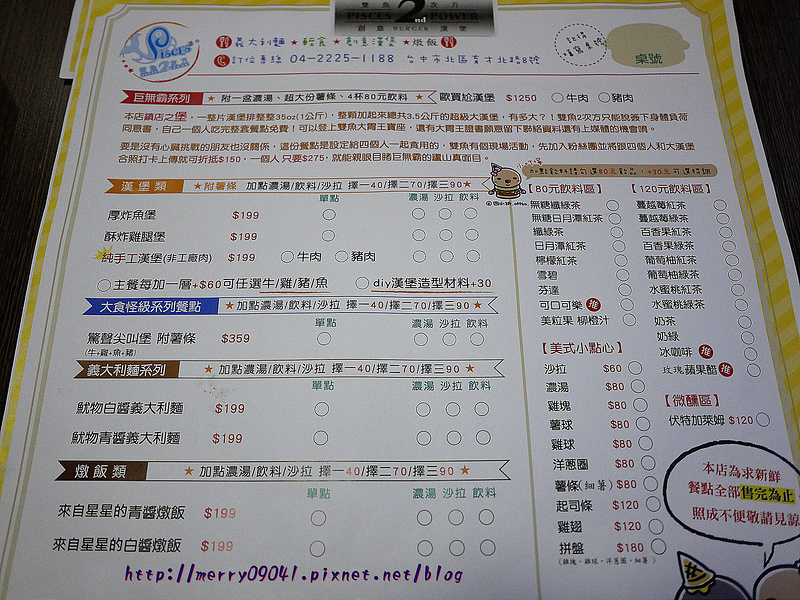 雙魚 2nd 次方
PISCES POWER
創意 BURGER 漢堡
PISCES
義大利麵 ★ 輕食 ★ 創意漢堡 ★ 燉飯
訂位專線 04-2225-1188 台中市北區育才北路8號
記得填寫桌號
桌號
巨無霸系列 ★ 附一盆濃湯、超大份薯條、4杯80元飲料 ★ 歐買尬漢堡 $1250 ○牛肉 ○豬肉
本店鎮店之堡，一整片漢堡排整整35oz(1公斤)，整顆加起來總共3.5公斤的超級大漢堡，有多大？！雙魚2次方只能說簽下身體負荷
同意書，自己一個人吃完整套餐點免費！可以登上雙魚大胃王寶座，還有大胃王證書願意留下聯絡資料還有上媒體的機會唷。
要是沒有心臟挑戰的朋友也沒關係，這份餐點是設定給四個人一起食用的，雙魚有個現場活動，先加入粉絲團並將跟四個人和大漢堡
合照打卡上傳就可折抵$150，一個人只要$275，就能親眼目睹巨無霸的廬山真面目。
漢堡類 ★附薯條 加點濃湯/飲料/沙拉 擇一40/擇二70/擇三90★
單點 濃湯 沙拉 飲料
厚炸魚堡 $199
酥炸雞腿堡 $199
純手工漢堡(非工廠肉) $199 ○牛肉 ○豬肉
○主餐每加一層+$60可任選牛/雞/豬/魚 ○diy漢堡造型材料+30
大食怪級系列餐點 ★加點濃湯/飲料/沙拉 擇一40/擇二70/擇三90★
單點 濃湯 沙拉 飲料
驚聲尖叫堡 附薯條 $359
(牛+雞+魚+豬)
義大利麵系列 ★ 加點濃湯/飲料/沙拉 擇一40/擇二70/擇三90 ★
單點 濃湯 沙拉 飲料
魷物白醬義大利麵 $199
魷物青醬義大利麵 $199
燉飯類 ★ 加點濃湯/飲料/沙拉 擇一40/擇二70/擇三90 ★
單點 濃湯 沙拉 飲料
來自星星的青醬燉飯 $199
來自星星的白醬燉飯 $199
加點飲料請勾選80元飲品，+30元可選特調
【80元飲料區】
無糖纖綠茶
無糖日月潭紅茶
纖綠茶
日月潭紅茶
檸檬紅茶
雪碧
芬達
可口可樂 推
美粒果 柳橙汁
【120元飲料區】
蔓越莓紅茶
蔓越莓綠茶
百香果紅茶
百香果綠茶
葡萄柚紅茶
葡萄柚綠茶
水蜜桃紅茶
水蜜桃綠茶
奶茶
奶綠
冰咖啡 推
玫瑰蘋果醋 推
【美式小點心】
沙拉 $60
濃湯 $80
雞塊 $80
薯球 $80
雞球 $80
洋蔥圈 $80
薯條(細薯) $80
起司條 $120
雞翅 $120
拼盤 $180
(雞塊、雞球、洋蔥圈、細薯)
【微醺區】
伏特加萊姆 $120
本店為求新鮮
餐點全部售完為止
照成不便敬請見諒
http://merry09041.pixnet.net/blog